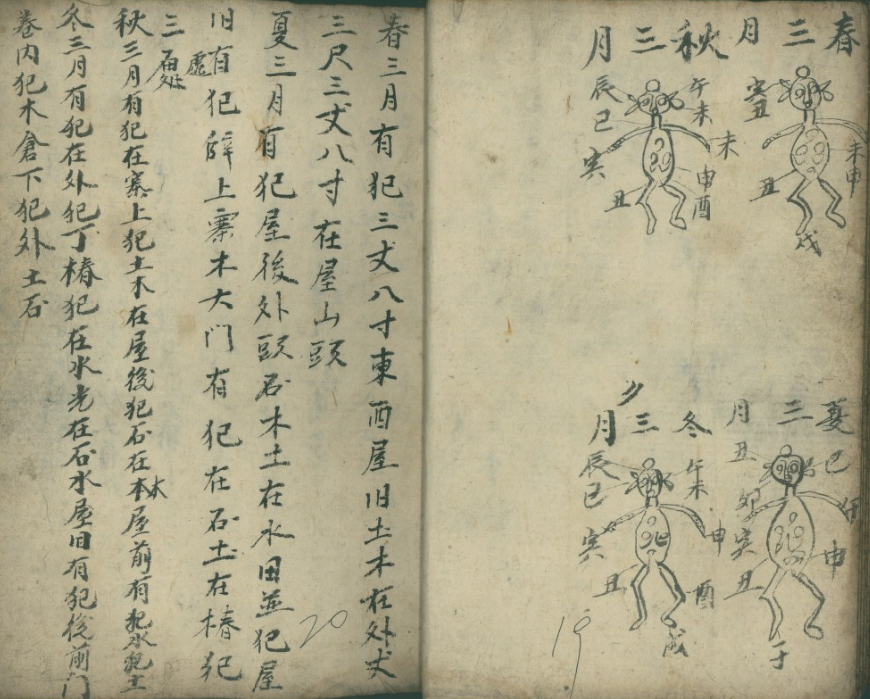 春三月
亥丑
未申
丑
戌
秋三月
辰巳
午未
未
亥
申酉
丑
夏三月
丑
巳
午
卯
亥
申
丑
子
冬三月
辰巳
午未
亥
申
丑
酉
戌
19
春三月有犯三丈八寸東酉屋旧土木在外丈
三尺三丈八寸在屋山頭
夏三月有犯屋後外頭石木土在水田並犯屋
旧有犯辭上寨木大门有犯在石土在椿犯
三
秋三月有犯在寨上犯土木在屋後犯石在本屋前有犯水犯土
冬三月有犯在外犯丁椿犯在水光在石水屋旧有犯後前门
卷内犯木倉下犯外土石
20